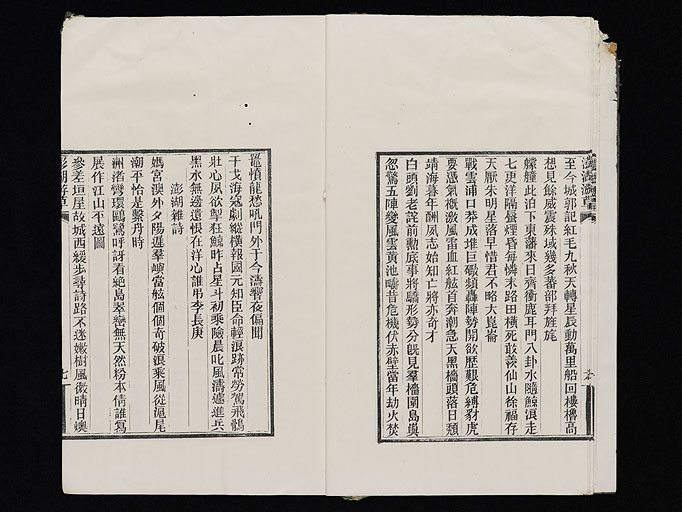 至今城郭記紅毛九秋天轉星辰動萬里船回樓櫓高
想見餘威震殊域幾多蕃部拜旌旄
艨艟此泊下東藩來日齊衝鹿耳門八卦水隨鯨浪走
七更洋隔蜃煙昏每憐末路田橫死敢羨仙山徐福存
天厭朱明星落早惜君不略大崑崙
戰雲浦口莽成堆巨礮頻轟陣勢開欲歷艱危縛豺虎
要憑氣概激風雷血紅舷首奔潮急天黑檣頭落日頹
靖海暮年酬夙志始知亡將亦奇才
白頭劉老詫前勳底事將驕形勢分旣見羣檣圍島嶼
忽驚五陣變風雲黃池疇昔危機伏赤壁當年劫火焚
鼉憤龍愁吼門外于今濤響夜偏聞
干戈海寇劇縱橫報國元知臣命輕浪跡常勞駕飛鶻
壯心夙欲掣狂鯨昨占星斗初乘險晨叱風濤遽進兵
黑水無邊遺恨在洋心誰弔李長庚
澎湖雜詩
媽宮澳外夕陽遲羣嶼當舷個個奇破浪乘風從滬尾
潮平恰是繫舟時
洲渚彎環鷗鷺呼訝看絶島翠巒無天然粉本倩誰寫
展作江山平遠圖
參差垣屋故城西緩步尋詩路不迷嫩樹風微晴日燠
七